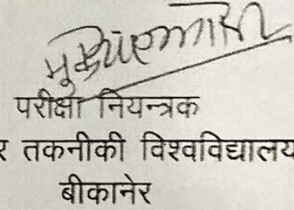 परीक्षा नियन्त्रक
र तकनीकी विश्वविद्यालय
बीकानेर